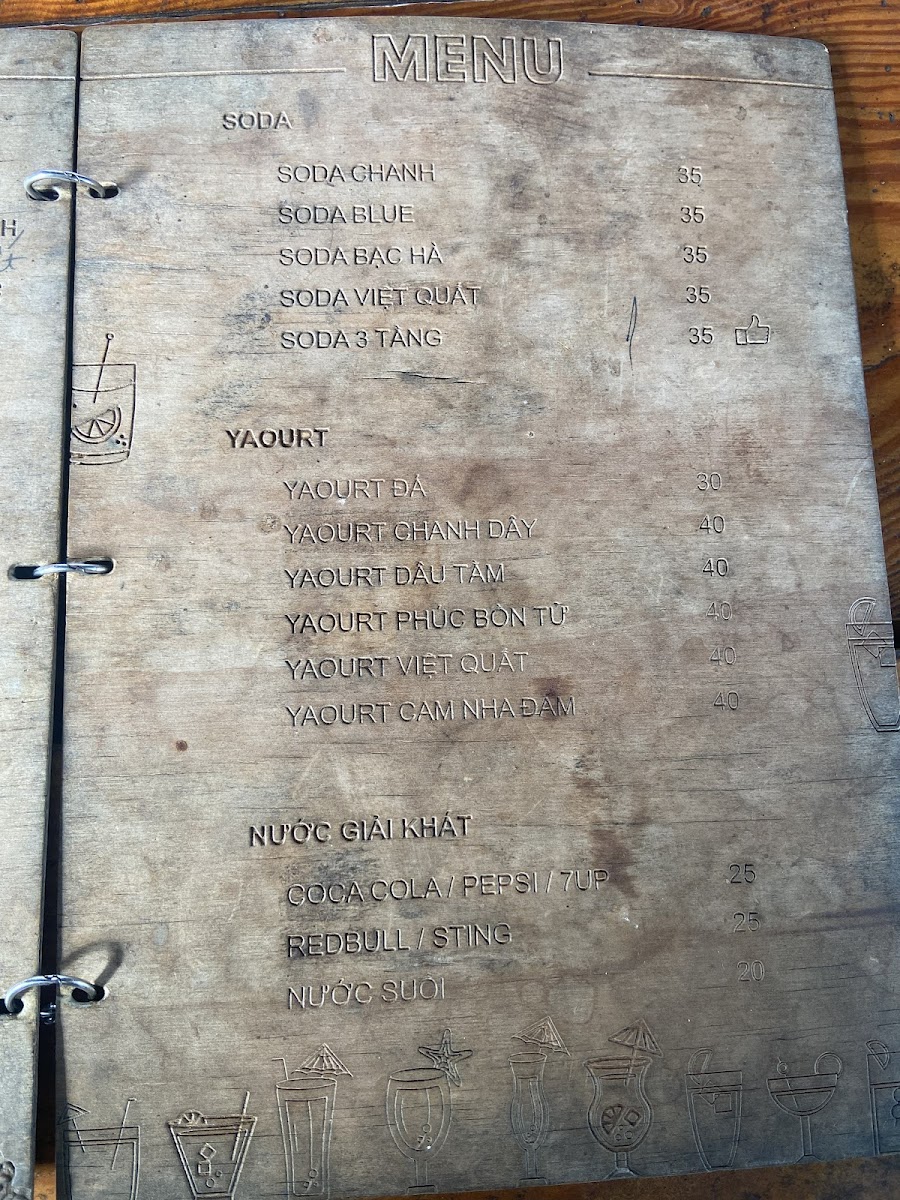 MENU
SODA
SODA CHANH 35
SODA BLUE 35
SODA BẠC HÀ 35
SODA VIỆT QUẤT 35
SODA 3 TẦNG 35
YAOURT
YAOURT ĐÁ 30
YAOURT CHANH DÂY 40
YAOURT DÂU TẰM 40
YAOURT PHÚC BỒN TỬ 40
YAOURT VIỆT QUẤT 40
YAOURT CAM NHA ĐAM 40
NƯỚC GIẢI KHÁT
COCA COLA / PEPSI / 7UP 25
REDBULL / STING 25
NƯỚC SUỐI 20